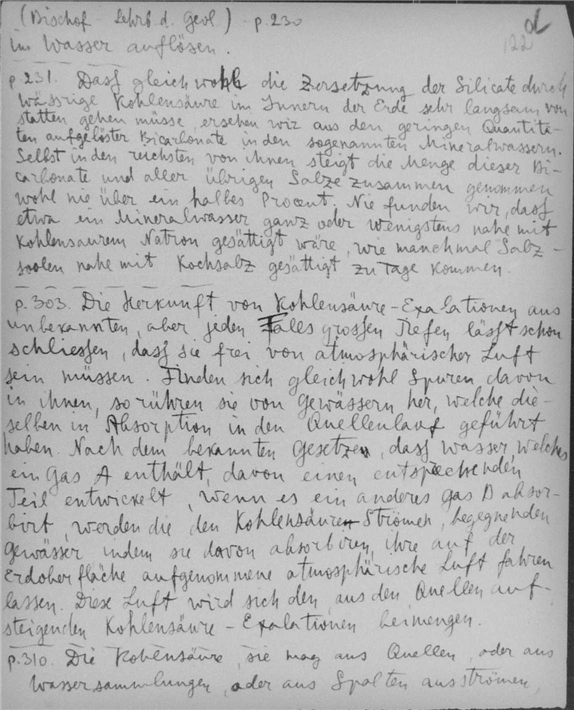 (Bischof - Lehrb. d. Geol.) - p. 230
im Wasser auflösen.
122
p. 231. Dass gleichwohl die Zersetzung der Silicate durch
wässrige Kohlensäure im Innern der Erde sehr langsam von
statten gehen müsse, ersehen wir aus den geringen Quantitä-
ten aufgelöster Bicarbonate in den sogenannten Mineralwassern.
Selbst in den reichsten von ihnen steigt die Menge dieser Bi-
carbonate und aller übrigen Salze zusammen genommen
wohl nie über ein halbes Procent. Nie funden wir, dass
etwa ein Mineralwasser ganz oder wenigstens nahe mit
Kohlensaurem Natron gesättigt wäre, wie manchmal Salz-
soolen nahe mit Kochsalz gesättigt zu Tage kommen.
p. 303. Die Herkunft von Kohlensäure-Exalationen aus
unbekannten, aber jeden Falles grossen Tiefen lässt schon
schliessen, dass sie frei von atmosphärischer Luft
sein müssen. Finden sich gleichwohl Spuren davon
in ihnen, so rühren sie von Gewässern her, welche die-
selben in Absorption in den Quellenlauf geführt
haben. Nach dem bekannten Gesetze, dass Wasser, welches
ein Gas A enthält, davon einen entspechenden
Teil entwickelt, wenn es ein anderes Gas B absor-
birt, werden die den Kohlensäure-Strömen, begegnenden
Gewässer indem sie davon absorbiren, ihre auf der
Erdoberfläche aufgenommene atmosphärische Luft fahren
lassen. Diese Luft wird sich den, aus den Quellen auf-
steigenden Kohlensäure-Exalationen beimengen.
p. 310. Die Kohlensäure, sie mag aus Quellen, oder aus
Wassersammlungen, oder aus Spalten ausströmen,